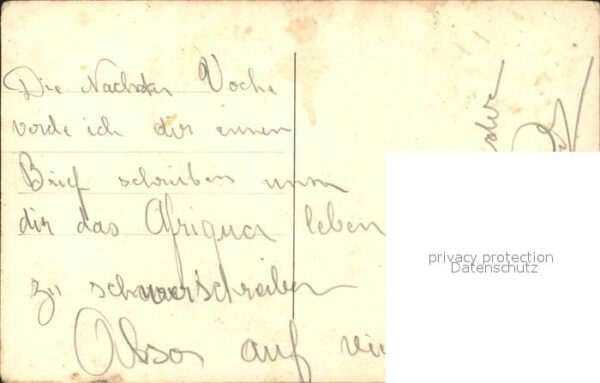 Die Nachster Voche
vorde ich dir einen
Brief schreiben unm
dir das Afriquer leben
zu schreiben
Also auf
privacy protection
Datenschutz